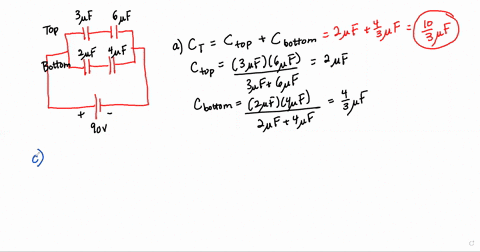 3μF 6μF
Top
2μF 4μF
Bottom
+ -
90V
a) C_T = C_top + C_bottom = 2μF + 4/3 μF = 10/3 μF
C_top = (3μF)(6μF) / 3μF + 6μF = 2μF
C_bottom = (2μF)(4μF) / 2μF + 4μF = 4/3 μF
c)